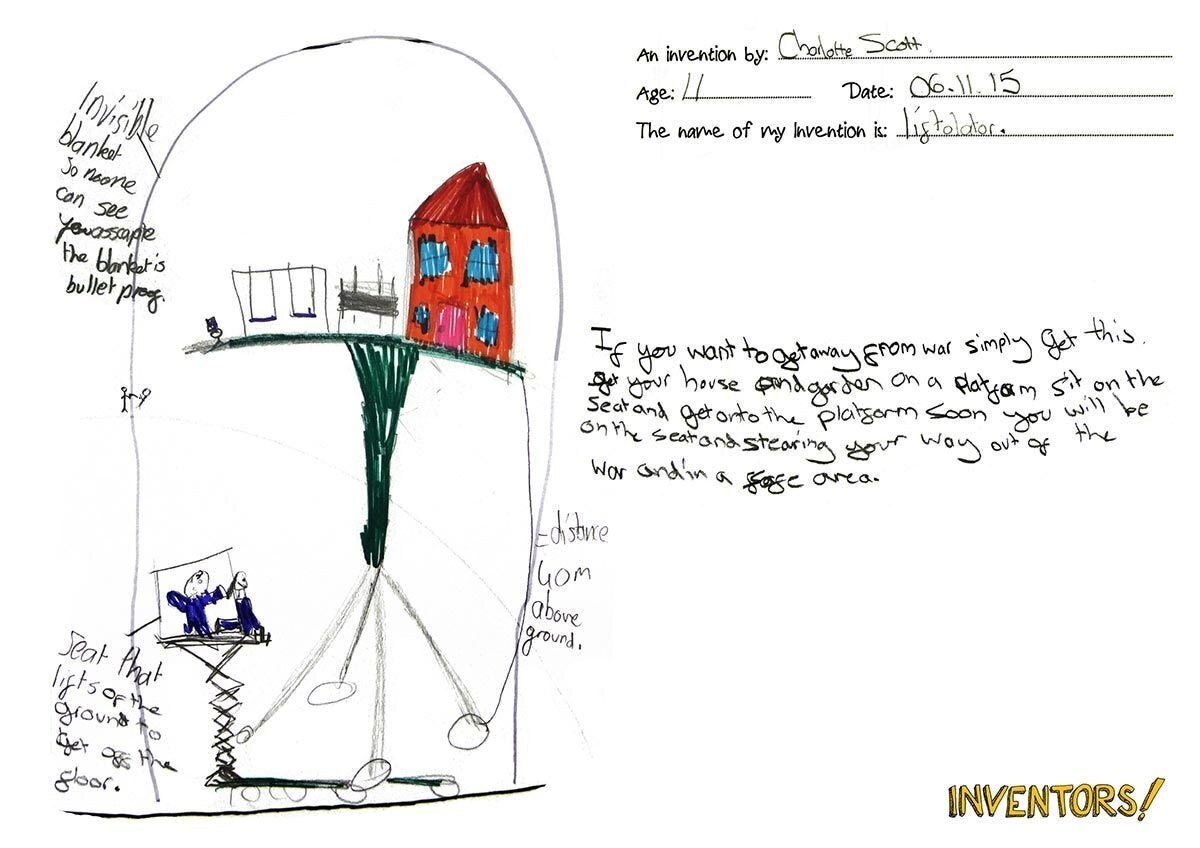 An invention by: Charlotte Scott.
Age: 11 Date: 06.11.15
The name of my Invention is: liftolator.
Invisible
blanket
So noone
can see
you asscape
the blanket is
bullet proof.
If you want to get away from war simply get this.
get your house and garden on a platform sit on the
seat and get onto the platform soon you will be
on the seat and stearing your way out of the
war and in a safe area.
= distance
40m
above
ground.
Seat that
lifts of the
ground to
get off the
floor.
INVENTORS!